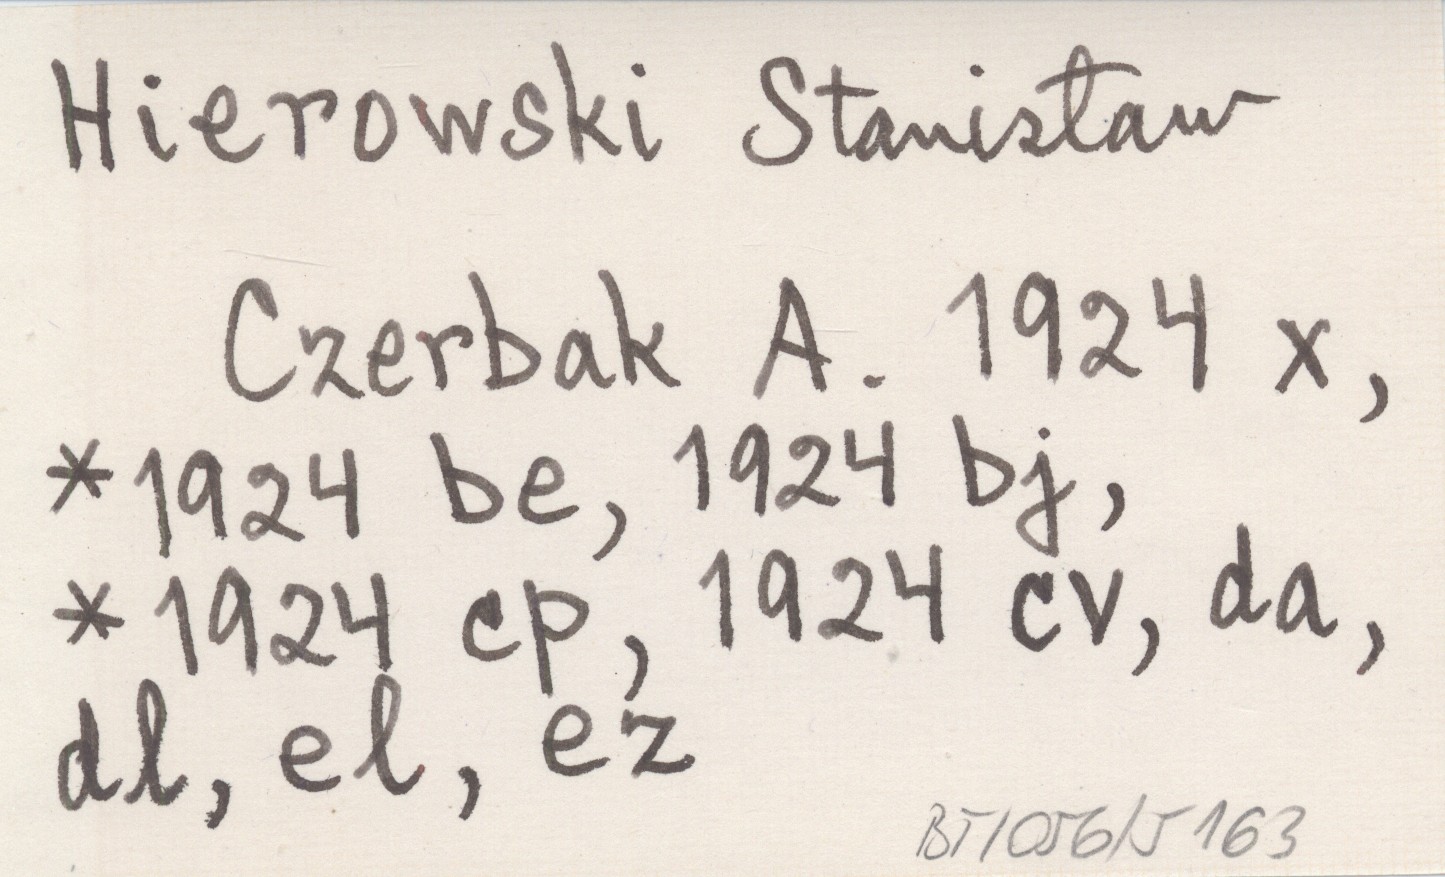 Hierowski Stanisław
Czerbak A. 1924 x,
*1924 be, 1924 bj,
*1924 cp, 1924 cv, da,
dl, el, ez
BT/056/J 163